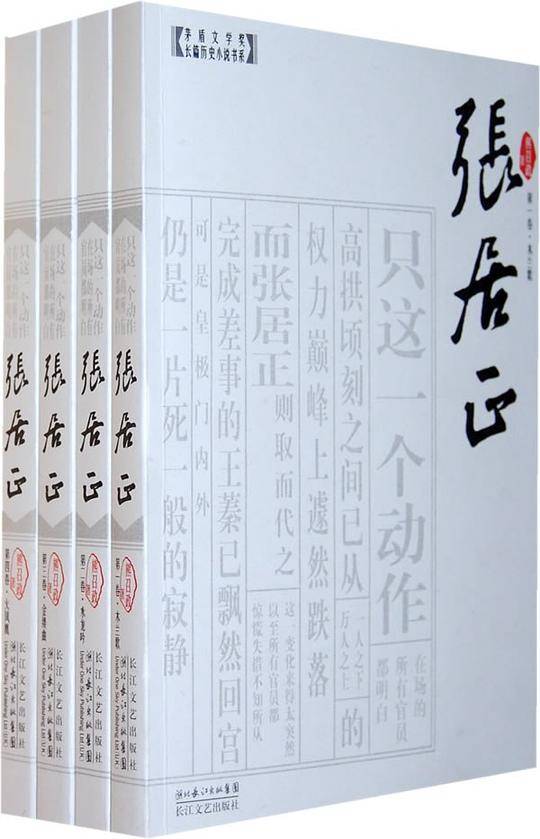 茅盾文学奖
长篇历史小说书系
張居正
熊召政
著
第一卷·木兰歌
只这一个动作
在场的
所有官员
都明白
高拱顷刻之间已从
一人之下
万人之上
的
权力巅峰上遽然跌落
这一变化来得太突然
以至所有官员都
惊慌失措不知所从
而张居正
则取而代之
完成差事的王蓁已飘然回宫
可是皇极门内外
仍是一片死一般的寂静
湖北长江出版集团
长江文艺出版社
張居正
熊召政
著
第一卷·木兰歌
长江文艺出版社
湖北长江出版集团
張居正
熊召政
著
第二卷·水龙吟
长江文艺出版社
湖北长江出版集团
張居正
熊召政
著
第三卷·金缕曲
长江文艺出版社
湖北长江出版集团
張居正
熊召政
著
第四卷·火凤凰
长江文艺出版社
湖北长江出版集团